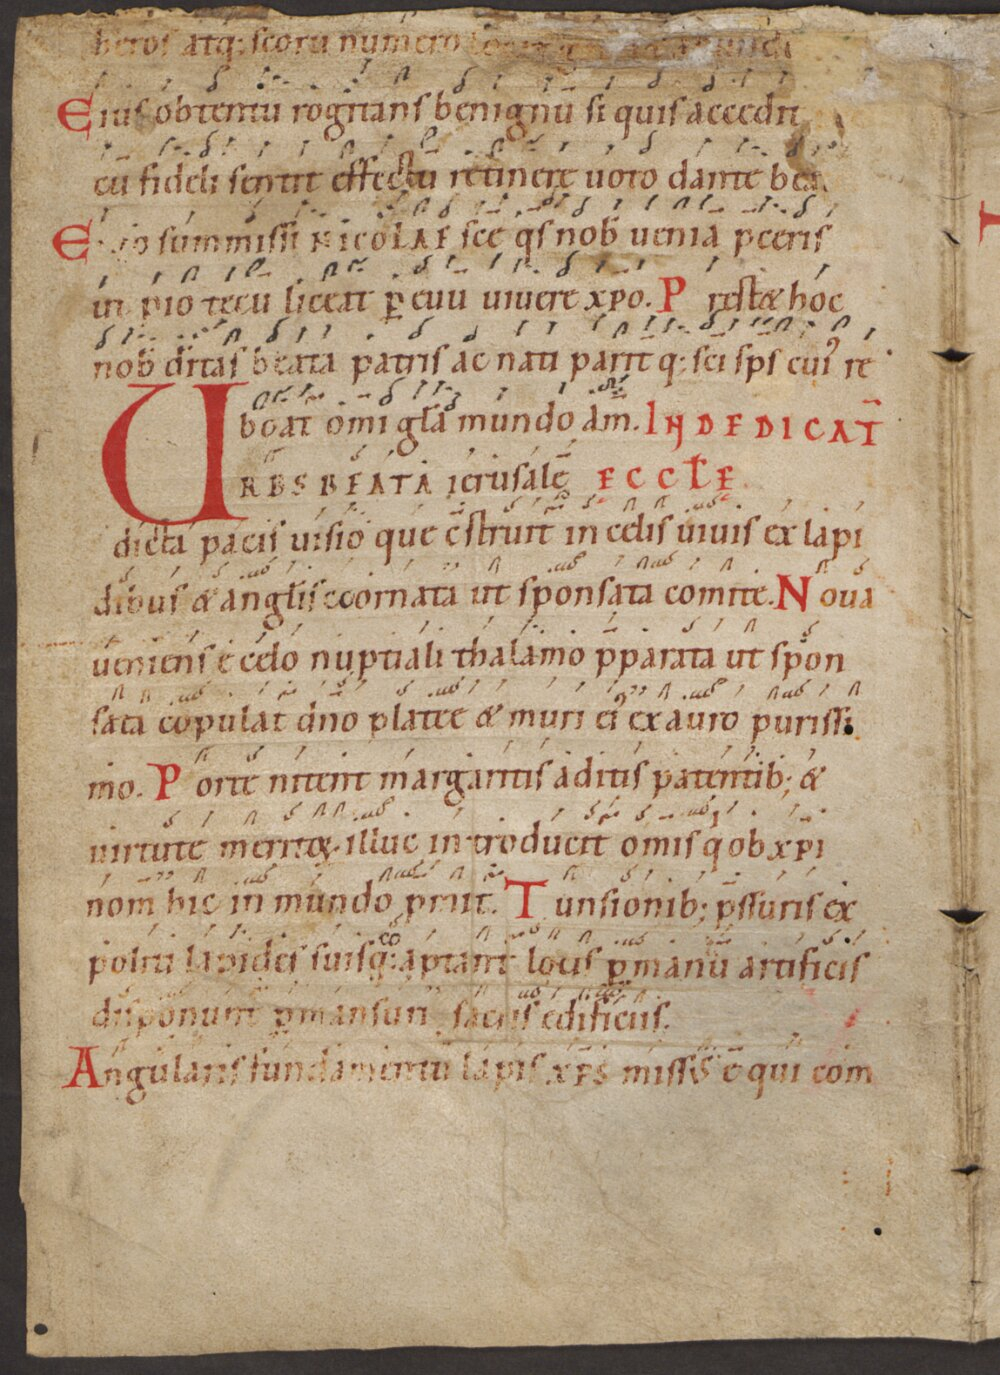 beros atq; scoru numero
Eius obtentu rogitans benignū si quis accedit
cū fideli sentit effectū retinere uoto dante bea
E sūmmissi NICOLAE sce q̄s nob ueniā p̄ceris
ut pio tecū liceat p̱ euū uiuere xp̄o. P restæ hoc
nob ditas beata patris ac nati parit q; sci sp̄s cui᾽ re
boat om̄i gl̄a mundo am̄. IN DEDICAT̄
URBS BEATA ierusalē ECCLE
dicta pacis uisio que c̄struit in celis uiuis ex lapi
dibus & anglis coornata ut sponsata comite. Noua
ueniens e celo nuptiali thalamo p̄parata ut spon
sata copulat dn̄o platee & muri ei᾽ ex auro purissi
mo. Porte nitent margaritis aditis patentib; &
uirtute meritoꝝ illuc introducit om̄is q̇ ob xp̄i
nom̄ hic in mundo p̄mit. Tunsionib; p̄ssuris ex
politi lapides suisq; coaptant locis p̱ manū artificis
disponunt p̱mansuri sacris edificiis.
Angularis fundamentū lapis xp̄s missus ē qui com